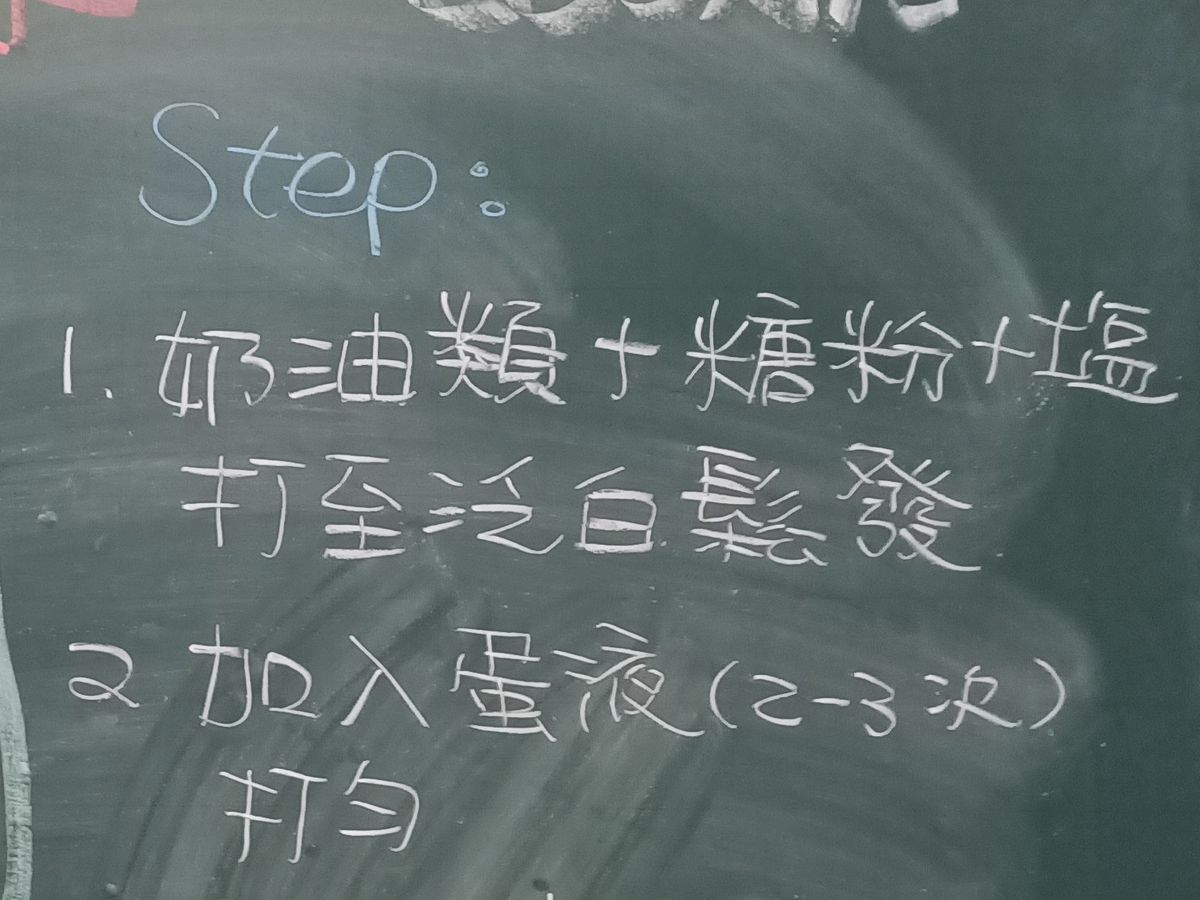 Step:
1. 奶油類+糖粉+塩
打至泛白鬆發
2 加入蛋液(2-3次)
打勻